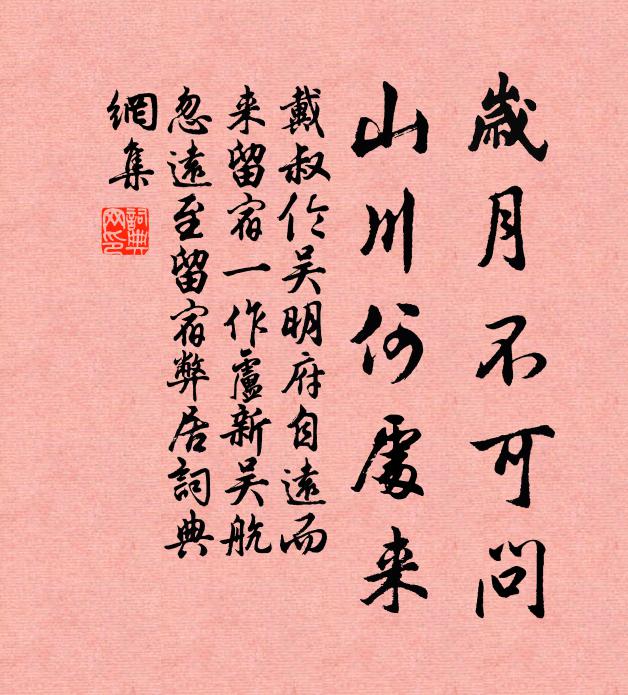 歲月不可問
山川何處来
戴叔伦吴明府自遠而
来留宿一作盧新吴航
忽遠至留宿弊居詞典
網集
詞典網印